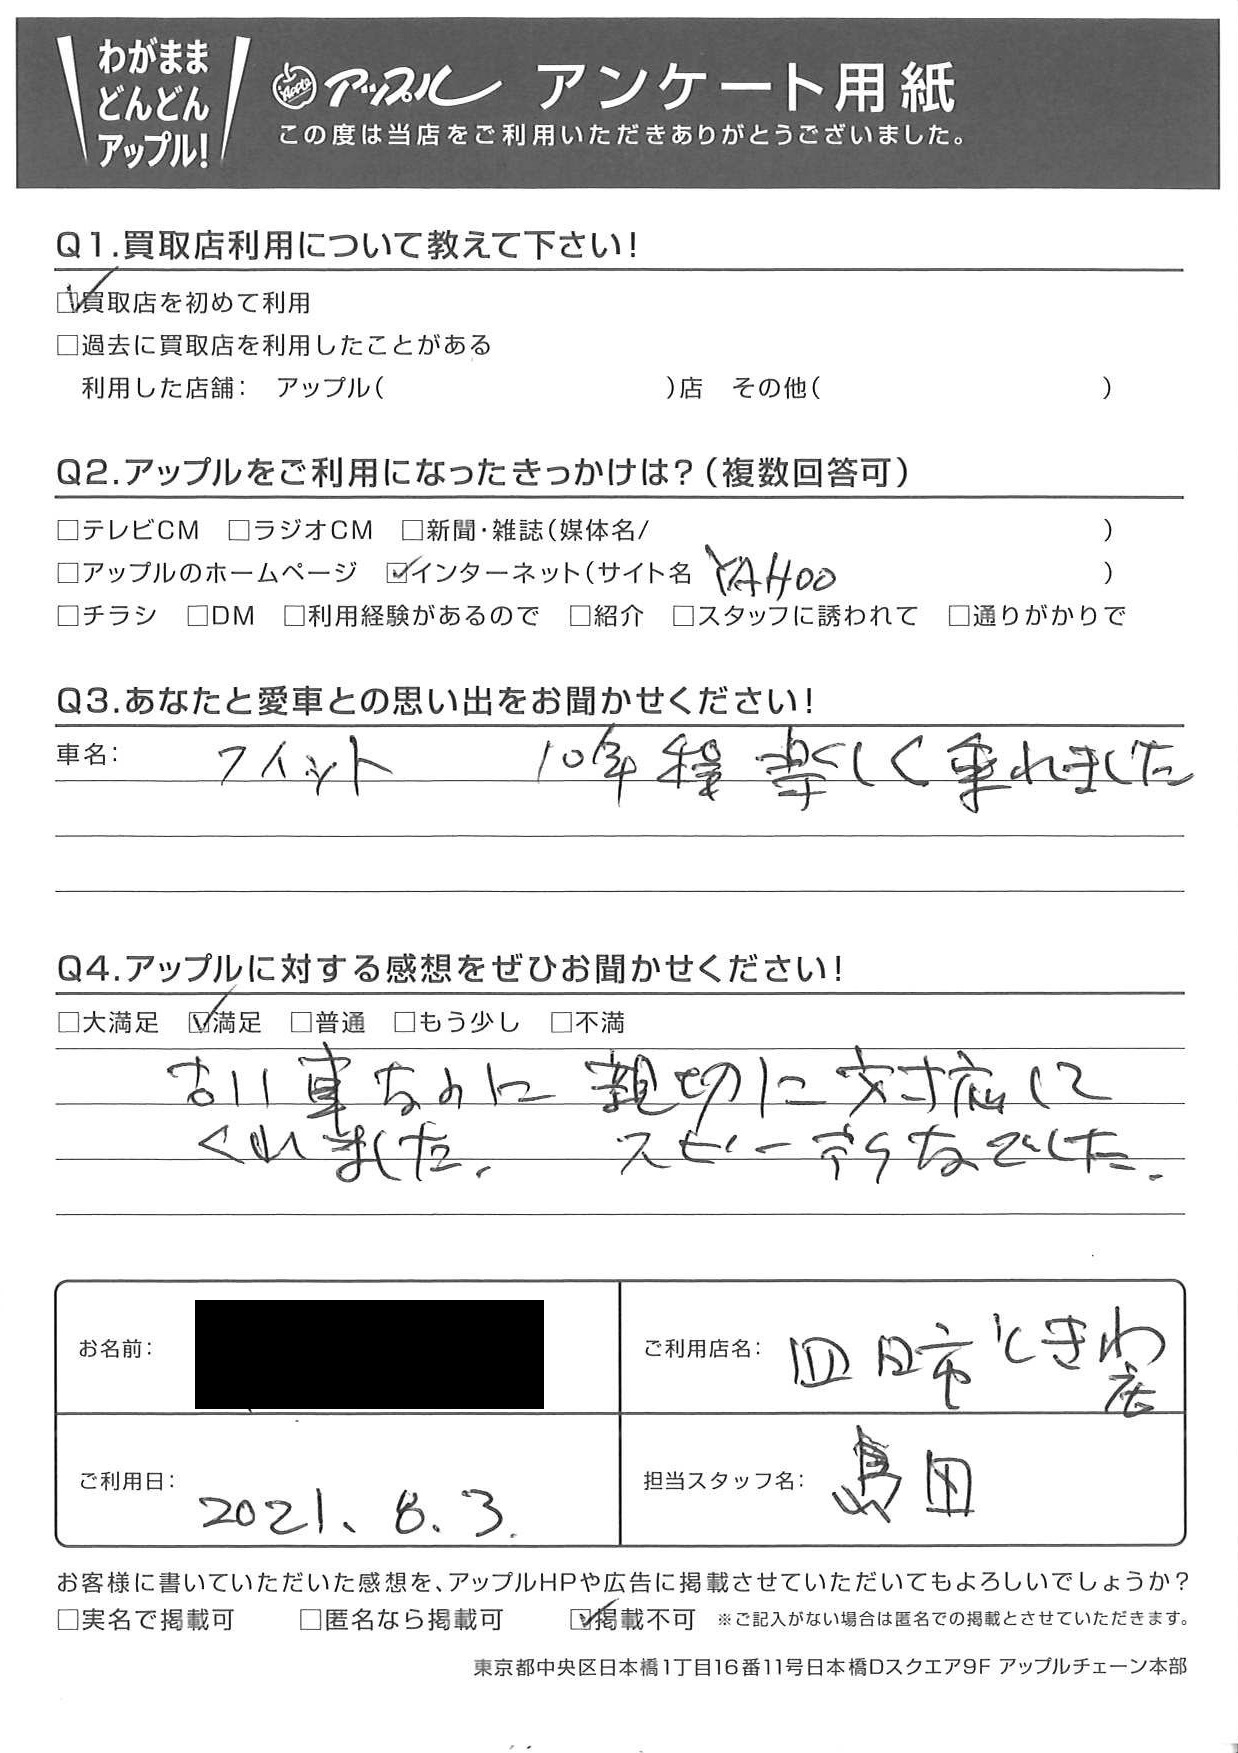 わがまま
どんどん
アップル!
Apple アップル アンケート用紙
この度は当店をご利用いただきありがとうございました。
Q1.買取店利用について教えて下さい!
☑買取店を初めて利用
□過去に買取店を利用したことがある
利用した店舗: アップル( )店 その他( )
Q2.アップルをご利用になったきっかけは?(複数回答可)
□テレビCM □ラジオCM □新聞・雑誌(媒体名/ )
□アップルのホームページ ☑インターネット(サイト名 YAHOO )
□チラシ □DM □利用経験があるので □紹介 □スタッフに誘われて □通りがかりで
Q3.あなたと愛車との思い出をお聞かせください!
車名: フィット 10年程楽しく乗れました
Q4.アップルに対する感想をぜひお聞かせください!
□大満足 ☑満足 □普通 □もう少し □不満
古い車なのに親切に対応して
くれました。 スピーディなでした.
お名前:
ご利用店名: 四日市ときわ店
ご利用日: 2021.8.3.
担当スタッフ名: 島田
お客様に書いていただいた感想を、アップルHPや広告に掲載させていただいてもよろしいでしょうか?
□実名で掲載可 □匿名なら掲載可 ☑掲載不可 ※ご記入がない場合は匿名での掲載とさせていただきます。
東京都中央区日本橋1丁目16番11号日本橋Dスクエア9F アップルチェーン本部